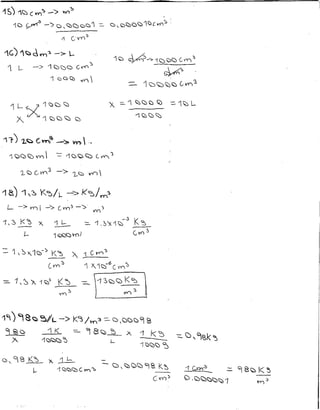 15) 10 cm³ -> m³
10 cm³ -> 0,00001 = 0,000010 cm³
1 cm³
16) 10 dm³ -> L
1 L -> 1000 cm³
1000 ml
10 dm³ x 1000 cm³
dm³
= 10000 cm³
1 L 1000
X 10000
X = 10000 = 10 L
1000
17) 20 cm³ -> ml.
1000 ml = 1000 cm³
20 cm³ -> 20 ml
18) 1,3 Kg/L -> Kg/m³
L -> ml -> cm³ -> m³
1,3 Kg x 1 L = 1,3x10⁻³ Kg
L 1000 ml cm³
= 1,3x10⁻³ Kg x 1 cm³
cm³ 1x10⁻⁶ cm³
= 1,3 x 10³ Kg = 1300 Kg
m³ m³
19) 980 g/L -> Kg/m³ = 0,00098
980 1K = 980 g x 1 Kg = 0,98 Kg
X 1000 g L 1000 g
0,98 Kg x 1 L = 0,00098 Kg 1 cm³ = 980 Kg
L 1000 cm³ cm³ 0.000001 m³